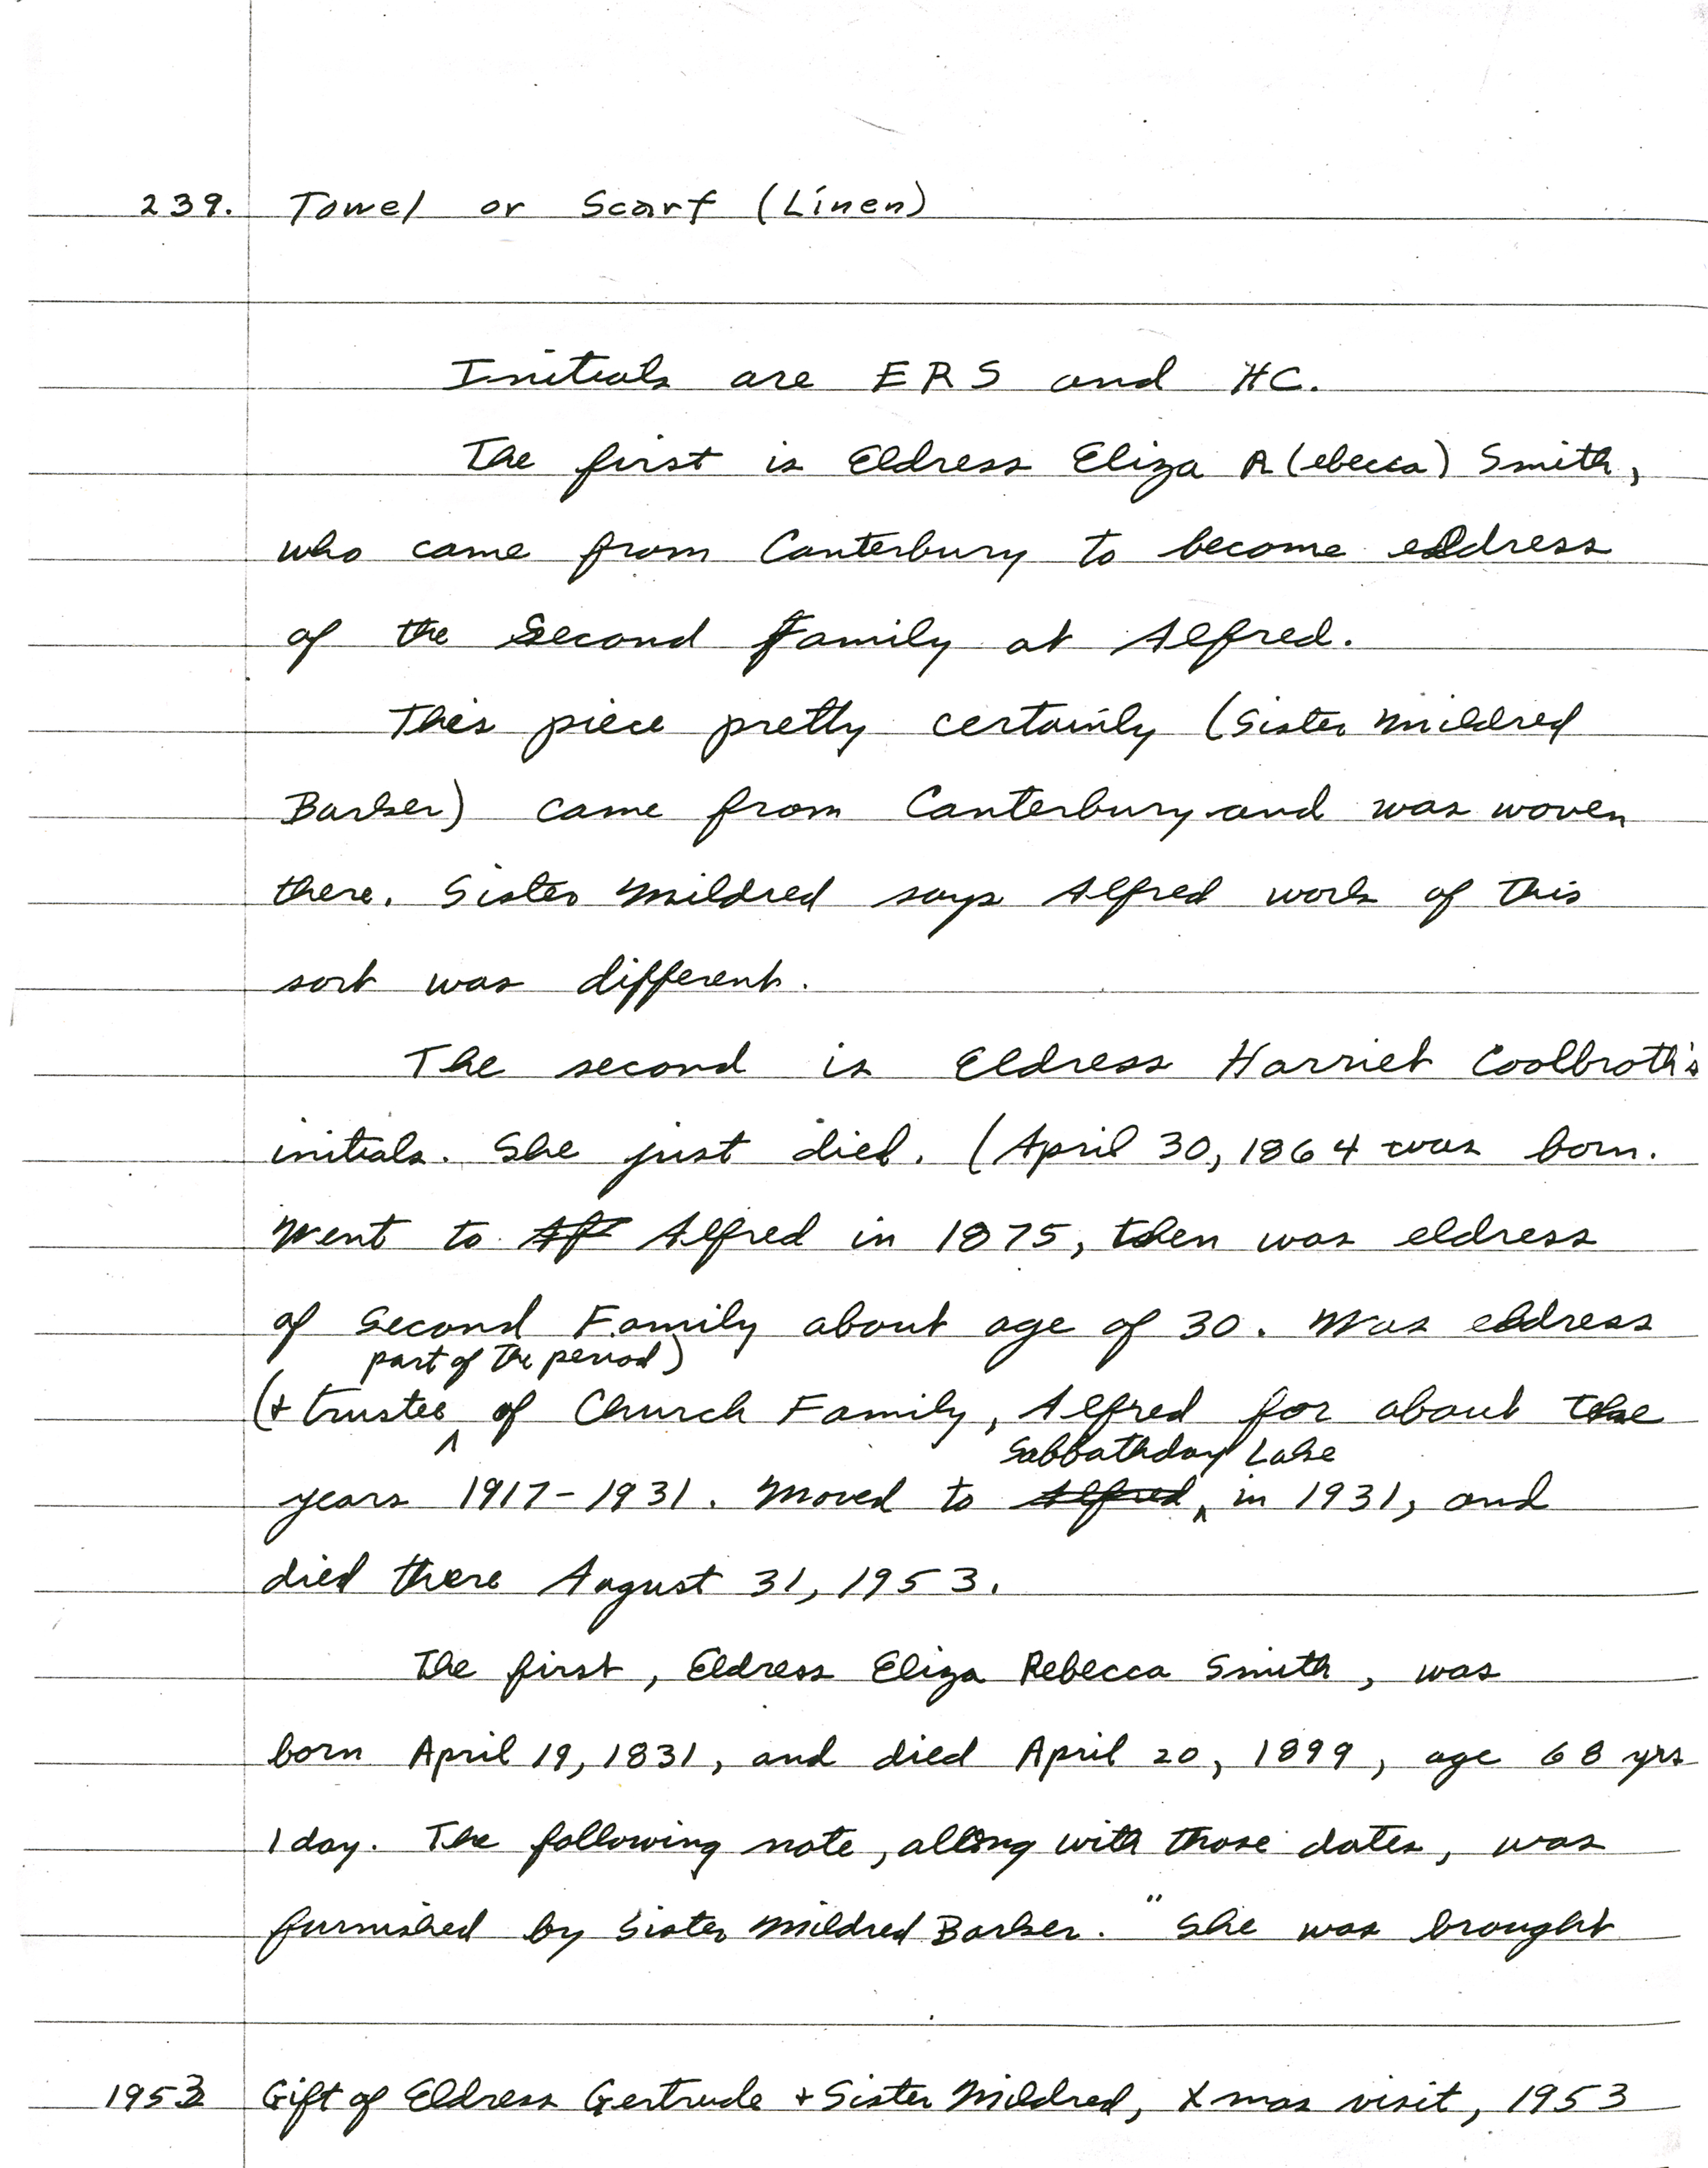 239. Towel or Scarf (Linen)
Initials are ERS and HC.
The first is Eldress Eliza R(ebecca) Smith,
who came from Canterbury to become eldress
of the Second Family at Alfred.
This piece pretty certainly (Sister Mildred
Barker) came from Canterbury and was woven
there. Sister Mildred says Alfred work of this
sort was different.
The second is Eldress Harriet Coolbroth's
initials. She just died. (April 30, 1864 was born.
Went to Af Alfred in 1875, then was eldress
of Second Family about age of 30. Was eldress
part of the period)
(+ trustee ^ of Church Family, Alfred for about the
Sabbathday Lake
years 1917-1931. Moved to Alfred, ^ in 1931, and
died there August 31, 1953.
The first, Eldress Eliza Rebecca Smith, was
born April 19, 1831, and died April 20, 1899, age 68 yrs
1 day. The following note, along with those dates, was
furnished by Sister Mildred Barker. "She was brought
1953 Gift of Eldress Gertrude + Sister Mildred, Xmas visit, 1953